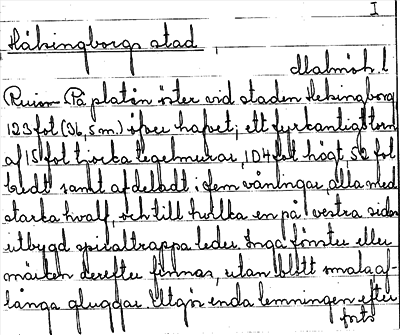 I
Hälsingborgs stad
Malmöh. l.
Ruin På platån öster vid staden Helsingborg
123 fot (36,5 m.) öfver hafvet; ett fyrkantigt torn
af 15 fot tjocka tegelmurar, 104 fot högt, 50 fot
bredt samt afdeladt i fem våningar, alla med
starka hvalf, och till hvilka en på vestra sidan
utbygd spiraltrappa leder. Inga fönster eller
märken derefter finnas, utan blott smala af-
långa gluggar. Utgör enda lemningen efter
forts